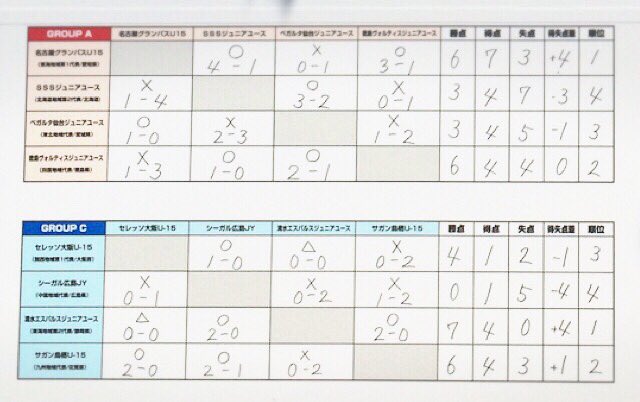 GROUP A 名古屋グランパスU15 SSSジュニアユース ベガルタ仙台ジュニアユース 徳島ヴォルティスジュニアユース 勝点 得点 失点 得失点差 順位
名古屋グランパスU15 ○ × ○
(東海地域第1代表/愛知県) 4-1 0-1 3-1 6 7 3 +4 1
SSSジュニアユース × ○ ×
(北海道地域第2代表/北海道) 1-4 3-2 0-1 3 4 7 -3 4
ベガルタ仙台ジュニアユース ○ × ×
(東北地域代表/宮城県) 1-0 2-3 1-2 3 4 5 -1 3
徳島ヴォルティスジュニアユース × ○ ○
(四国地域代表/徳島県) 1-3 1-0 2-1 6 4 4 0 2
GROUP C セレッソ大阪U-15 シーガル広島JY 清水エスパルスジュニアユース サガン鳥栖U-15 勝点 得点 失点 得失点差 順位
セレッソ大阪U-15 ○ △ ×
(関西地域第1代表/大阪府) 1-0 0-0 0-2 4 1 2 -1 3
シーガル広島JY × × ×
(中国地域代表/広島県) 0-1 0-2 1-2 0 1 5 -4 4
清水エスパルスジュニアユース △ ○ ○
(東海地域第2代表/静岡県) 0-0 2-0 2-0 7 4 0 +4 1
サガン鳥栖U-15 ○ ○ ×
(九州地域代表/佐賀県) 2-0 2-1 0-2 6 4 3 +1 2